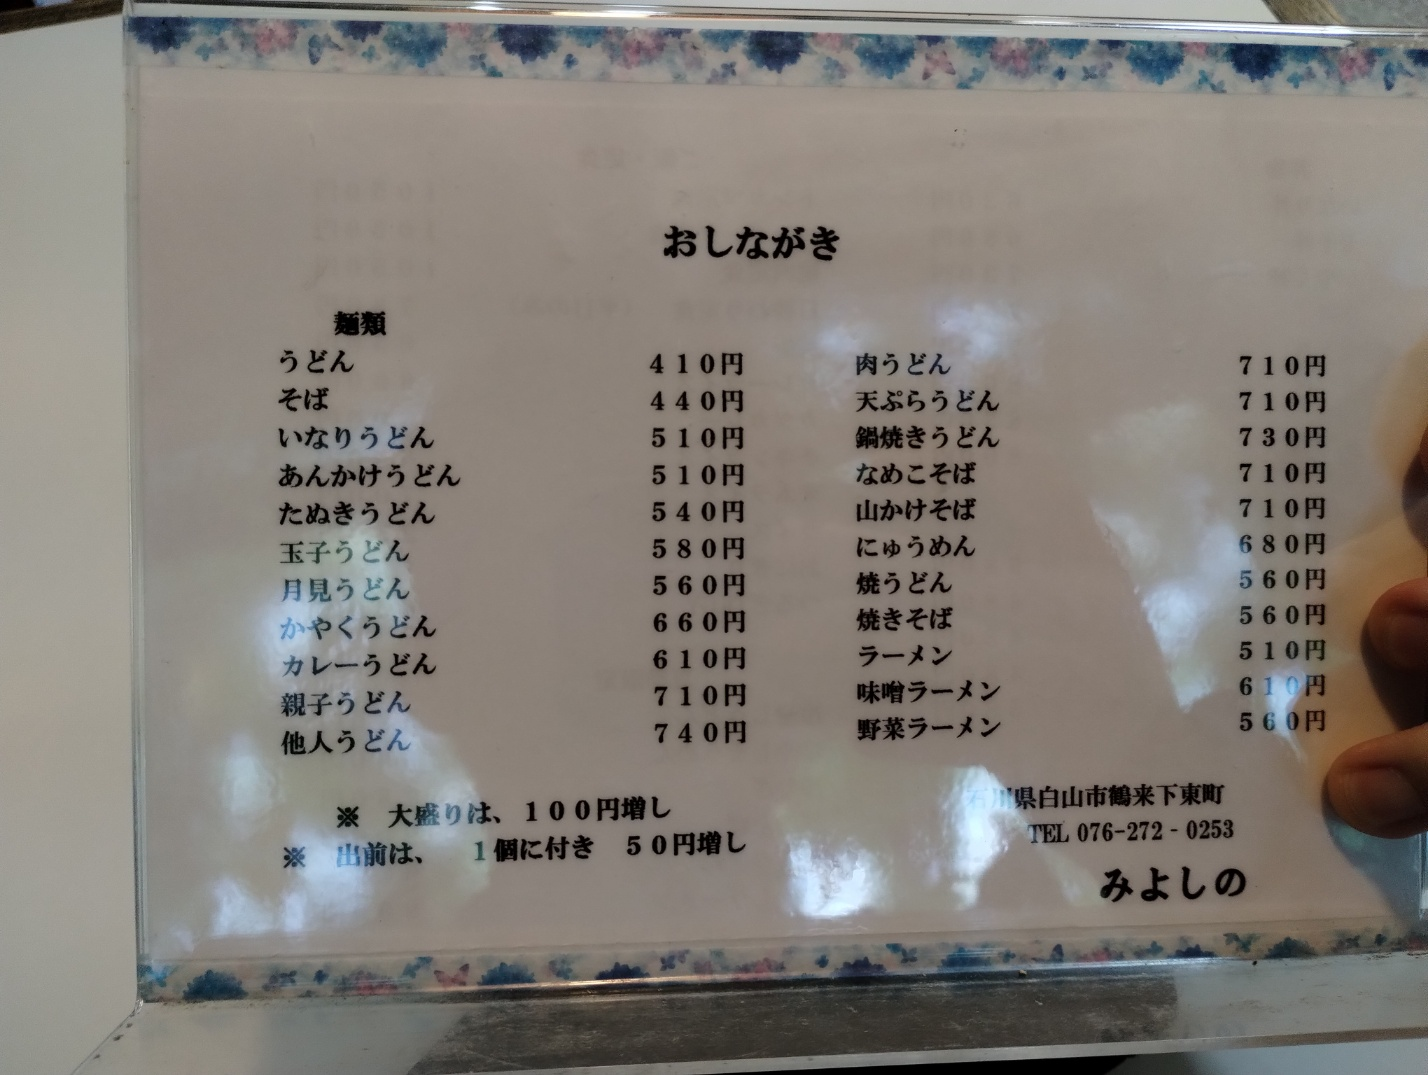 おしながき
麺類
うどん ４１０円
そば ４４０円
いなりうどん ５１０円
あんかけうどん ５１０円
たぬきうどん ５４０円
玉子うどん ５８０円
月見うどん ５６０円
かやくうどん ６６０円
カレーうどん ６１０円
親子うどん ７１０円
他人うどん ７４０円
肉うどん ７１０円
天ぷらうどん ７１０円
鍋焼きうどん ７３０円
なめこそば ７１０円
山かけそば ７１０円
にゅうめん ６８０円
焼うどん ５６０円
焼きそば ５６０円
ラーメン ５１０円
味噌ラーメン ６１０円
野菜ラーメン ５６０円
※　大盛りは、１００円増し
※　出前は、　１個に付き　５０円増し
石川県白山市鶴来下東町
TEL 076-272‐0253
みよしの